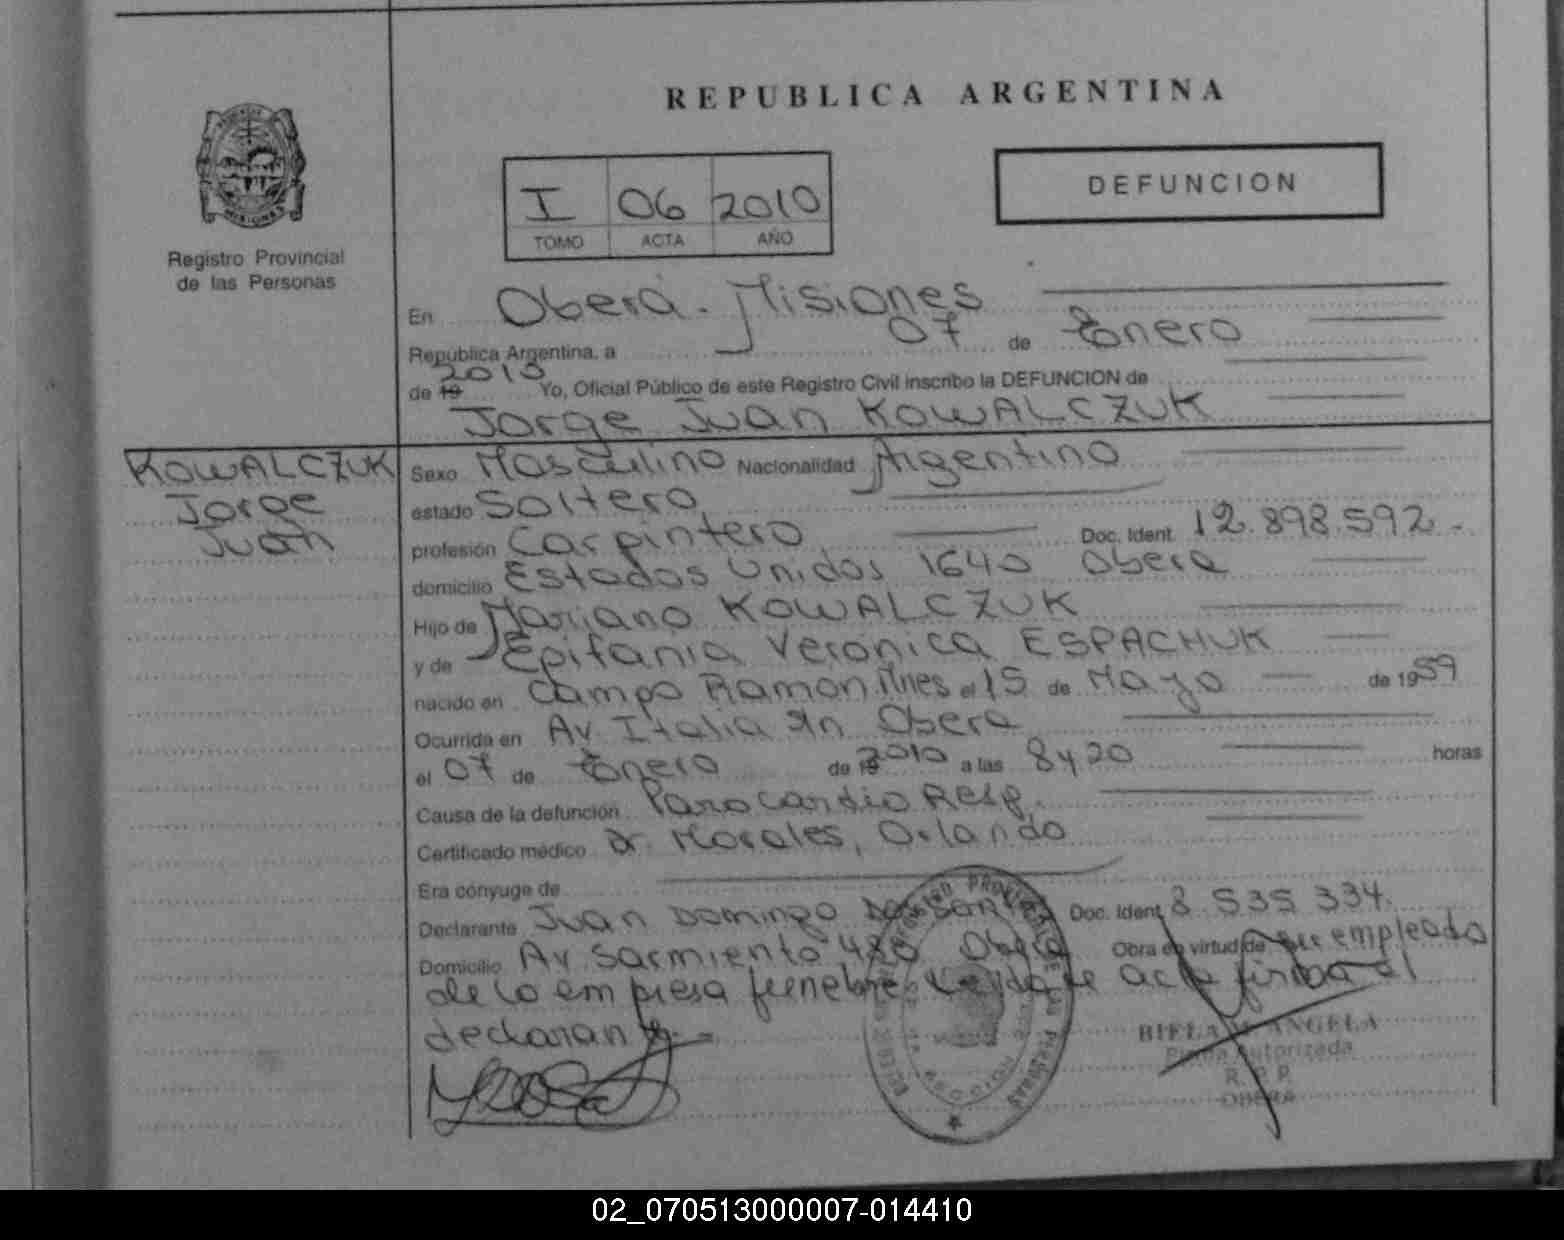 REPUBLICA ARGENTINA
MISIONES
Registro Provincial
de las Personas
I 06 2010
TOMO ACTA AÑO
DEFUNCION
En Oberá - Misiones
República Argentina, a 07 de Enero
de 19 2010 Yo, Oficial Público de este Registro Civil inscribo la DEFUNCION de
Jorge Juan KOWALCZUK
KOWALCZUK
Jorge
Juan
Sexo Masculino Nacionalidad Argentino
estado Soltero
profesión Carpintero Doc. Ident. 12.898.592.-
domicilio Estados Unidos 1640 Obera
Hijo de Mariano KOWALCZUK
y de Epifania Veronica ESPACHUK
nacido en Campo Ramon Mnes el 15 de Mayo de 1959
Ocurrida en Av Italia s/n Obera
el 07 de Enero de 19 2010 a las 8 y 20 horas
Causa de la defunción Paro cardio Resp.
Certificado médico Dr. Morales, Orlando
Era cónyuge de
Declarante Juan Domingo Doc. Ident. 8 535 334.
Domicilio Av Sarmiento 480 Obera Obra en virtud de ser empleado
de la empresa funebre Leida le acta firma el
declarante.-
BIELA M. ANGELA
Firma Autorizada
R. P. P.
OBERA
02_070513000007-014410